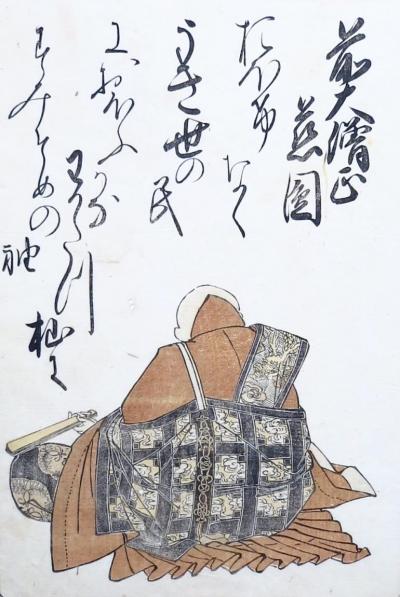 前大僧正
慈圓
おほけなく
うき世の民
におほふかな
わかたつ杣に
すみそめの袖